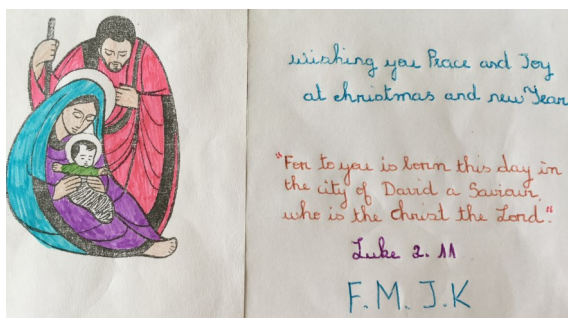 wishing you Peace and Joy
at christmas and new Year
"For to you is born this day in
the city of David a Saviour,
who is the christ the Lord."
Luke 2. 11
F. M. J. K